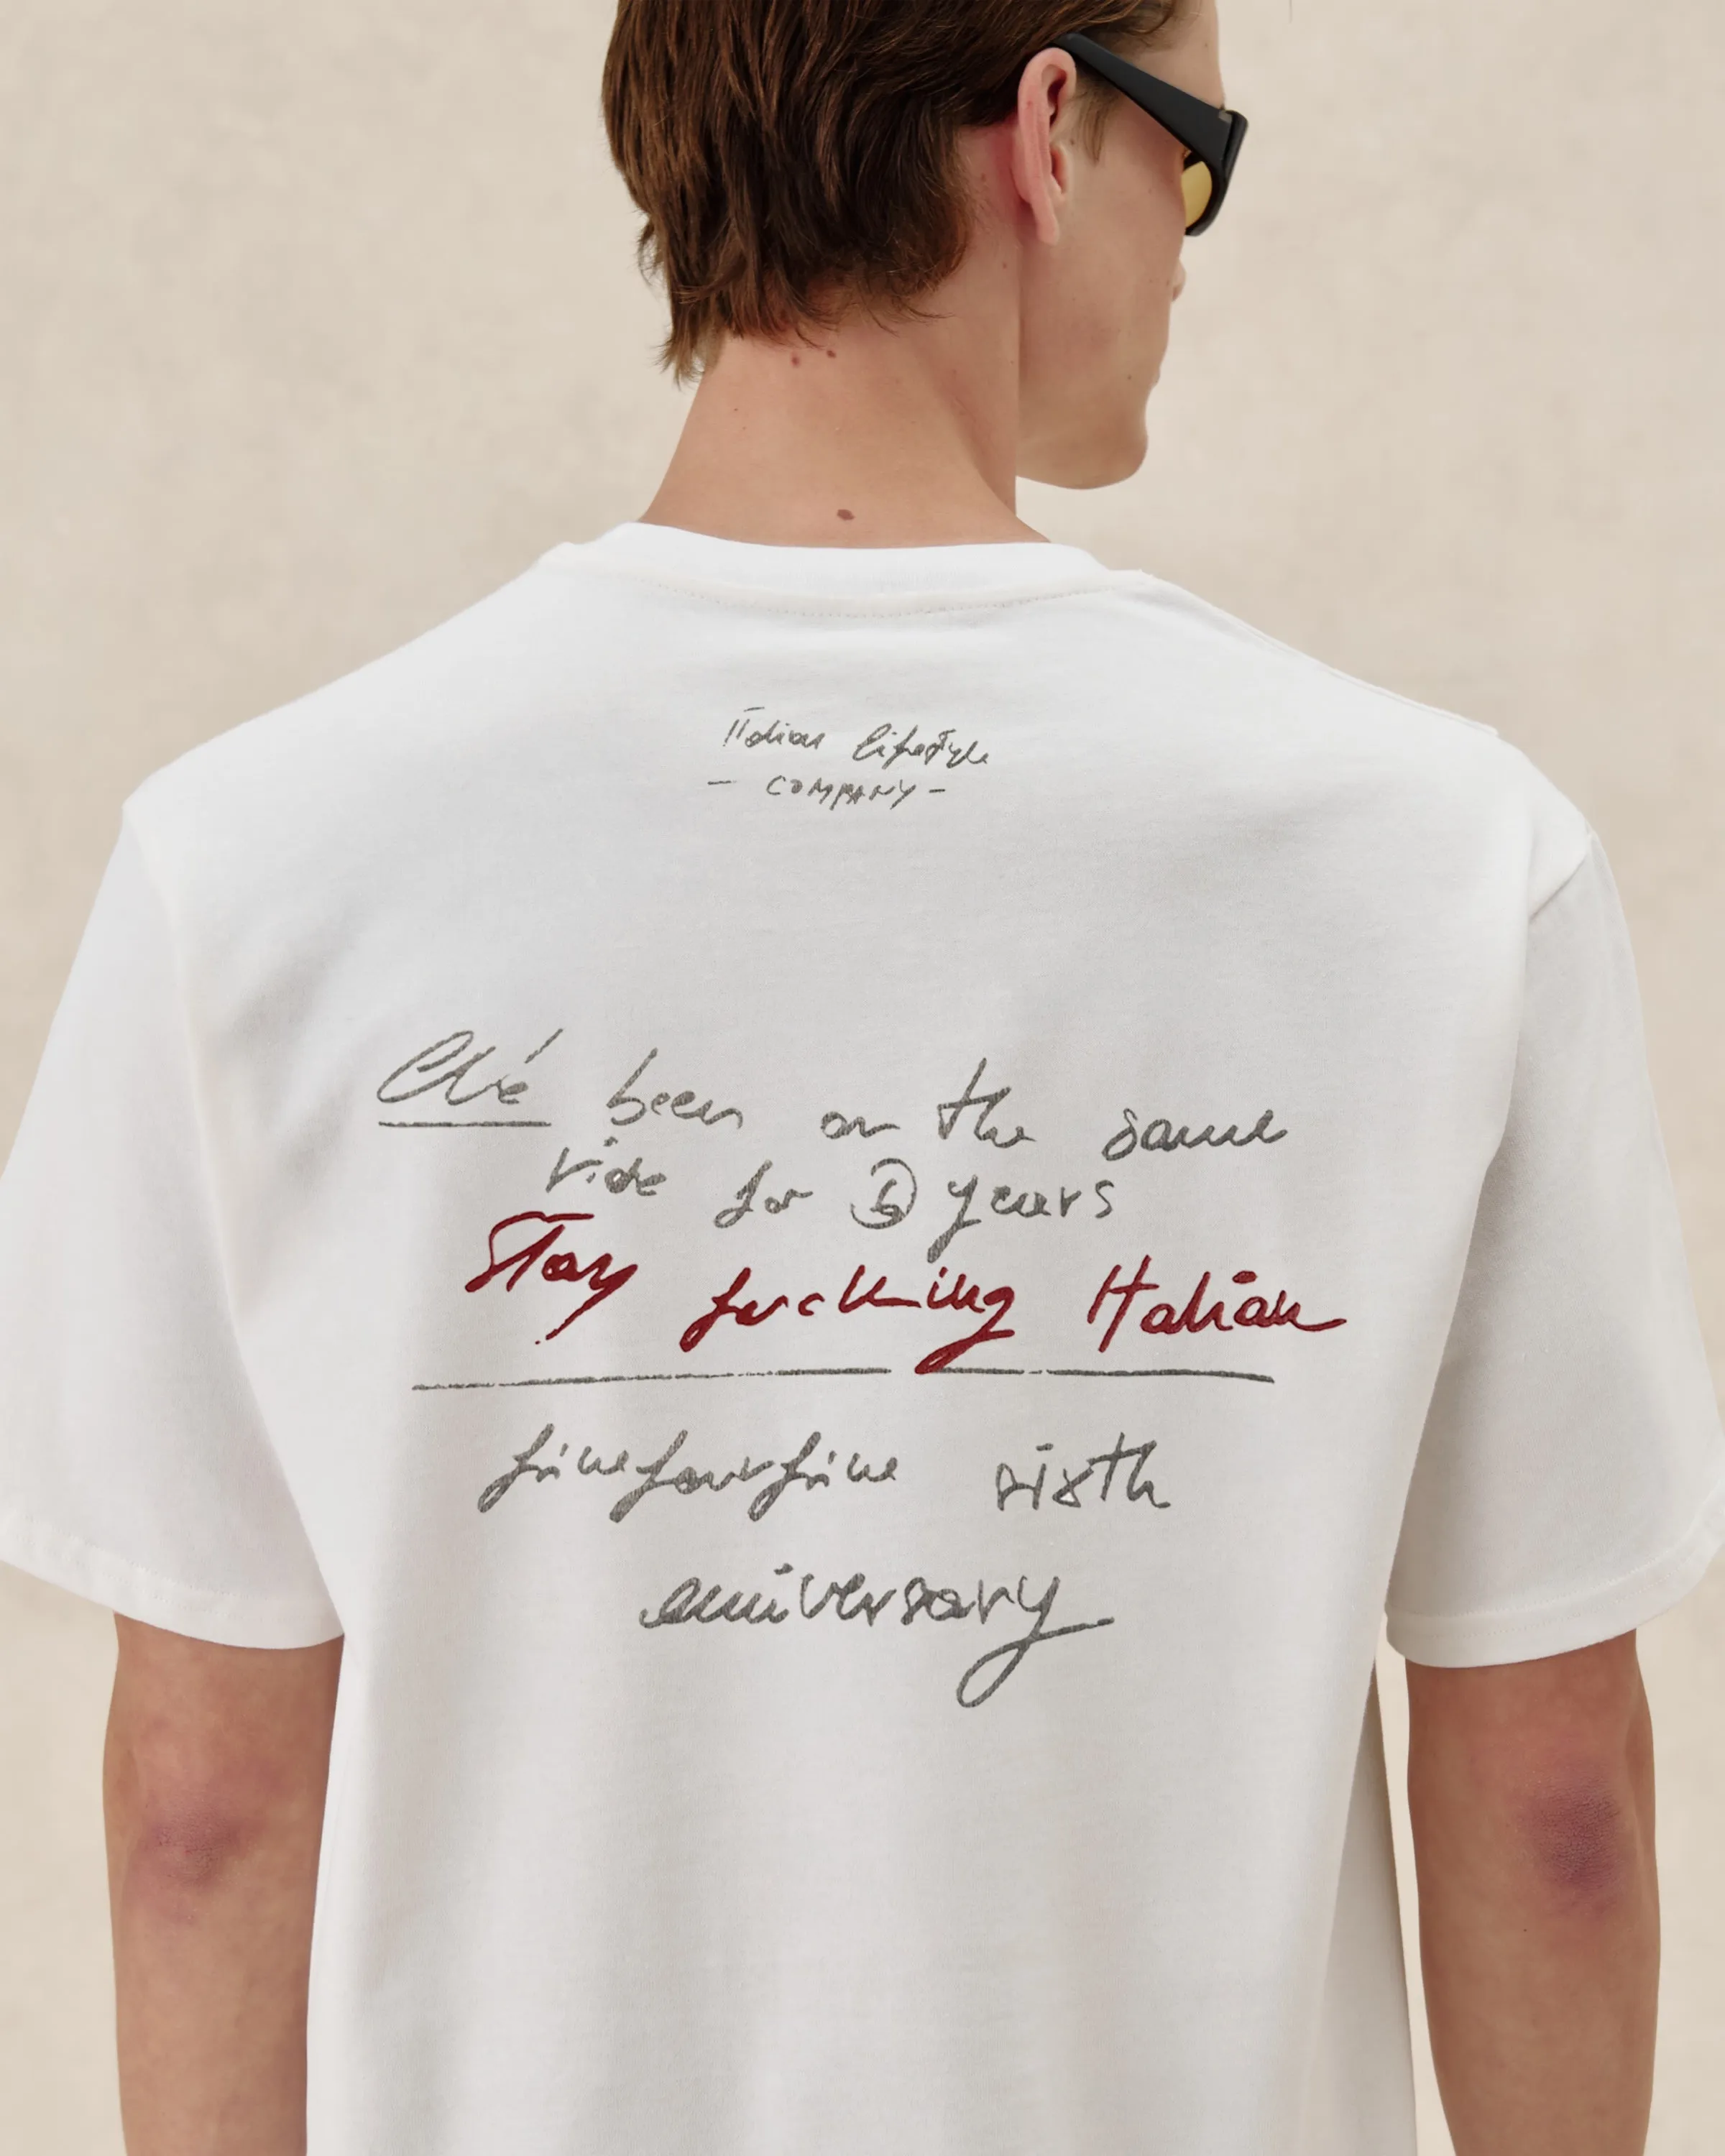 Italian lifestyle
- COMPANY -
been on the same
ride for 6 years
Stay fucking Italian
finefourfine sixth
anniversary